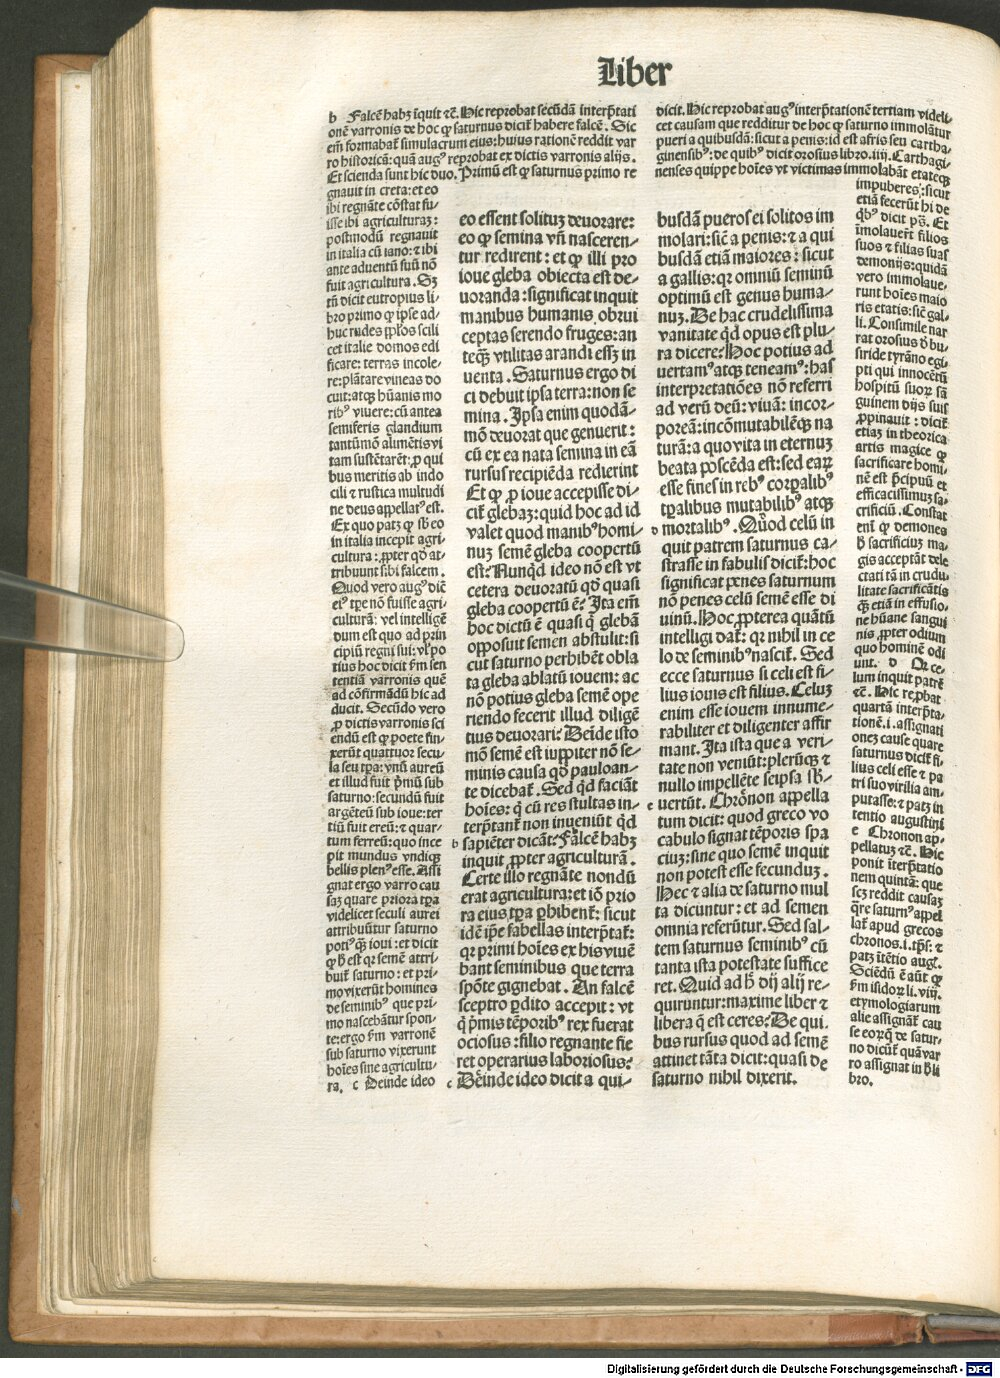 Liber
b Falcē habꝫ īquit ⁊c̄. Hic reprobat secūdā interp̄tati
onē varronis de hoc ꝙ saturnus dicit̄ habere falcē. Sic
em̄ formabat̄ simulacrum eius: huius rationē reddit var
ro historicā: quā augꝰ reprobat ex dictis varronis alijs.
Et scienda sunt hic duo. Primū est ꝙ saturnus primo re
gnauit in creta: et eo
ibi regnāte cōstat fu-
isse ibi agriculturaꝫ:
postmodū regnauit
in italia cū iano: ⁊ ibi
ante aduentū suū nō
fuit agricultura. Sꝫ
tn̄ dicit eutropius li-
bro primo ꝙ ipse ad-
huc rudes pp̄los scili
cet italie domos edi
ficare: terras incole-
re: plātare vineas do
cuit: atqꝫ hūanis mo
ribꝰ viuere: cū antea
semiferis glandium
tantūmō alimētis vi
tam sustētarēt: ꝓ qui
bus meritis ab indo
cili ⁊ rustica multudi
ne deus appellatꝰ est.
Ex quo patꝫ ꝙ sb̄ eo
in italia incepit agri
cultura: ꝓpter qd̄ at-
tribuunt sibi falcem.
Quod vero augꝰ dic̄
eiꝰ tp̄e nō fuisse agri-
culturā: vel intellige
dum est quo ad prin
cipiū regni sui: vl̓ po
tius hoc dicit ẜm sen
tentiā varronis quē
ad cōfirmādū hic ad
ducit. Secūdo vero
ꝓ dictis varronis sci
endū est ꝙ poete fin-
xerūt quattuor secu-
la seu tꝑa: vnū aureū
et illud fuit p̄mū sub
saturno: secundū fuit
argēteū sub ioue: ter
tiū fuit ereū: ⁊ quar-
tum ferreū: quo ince
pit mundus vndiqꝫ
bellis plenꝰ esse. Assi
gnat ergo varro cau
saꝫ quare priora tꝑa
videlicet seculi aurei
attribuūtur saturno
potiꝰ qꝫ̄ ioui: et dicit
ꝙ h̄ est qr semē attri
buit̄ saturno: et pri-
mo vixerūt homines
de seminibꝰ que pri-
mo nascebātur spon-
te: ergo ẜm varronē
sub saturno vixerunt
hoīes sine agricultu-
ra. c Deinde ideo
eo essent solituꝫ deuorare:
eo ꝙ semina vn̄ nasceren-
tur redirent: et ꝙ illi pro
ioue gleba obiecta est de-
uoranda: significat inquit
manibus humanis obrui
ceptas serendo fruges: an
teqꝫ̄ vtilitas arandi essꝫ in
uenta. Saturnus ergo di
ci debuit ipsa terra: non se
mina. Ipsa enim quodā-
mō deuorat que genuerit:
cū ex ea nata semina in eā
rursus recipiēda redierint
Et ꝙ ꝓ ioue accepisse di-
cit̄ glebaꝫ: quid hoc ad id
valet quod manibꝰ homi-
nuꝫ semē gleba coopertū
est: Nunqd̄ ideo nō est vt
cetera deuoratū qd̄ quasi
gleba coopertū ē? Ita em̄
hoc dictū ē quasi q̄ glebā
opposuit semen abstulit: si
cut saturno perhibēt obla
ta gleba ablatū iouem: ac
nō potius gleba semē ope
riendo fecerit illud diligē
tius deuorari? Deīde isto
mō semē est iuppiter nō se-
minis causa qd̄ pauloan-
te dicebat̄. Sed qd̄ faciāt
hoīes: q̄ cū res stultas in-
terp̄tant̄ non inueniūt qd̄
b sapiēter dicāt: Falcē habꝫ
inquit ꝓpter agriculturā.
Certe illo regnāte nondū
erat agricultura: et iō prio
ra eius tꝑa ꝑhibent̄: sicut
idē ip̄e fabellas interp̄tat̄:
qr primi hoīes ex his viuē
bant seminibus que terra
spōte gignebat. An falcē
sceptro ꝑdito accepit: vt
q̄ p̄mis tēporibꝰ rex fuerat
ociosus: filio regnante fie
ret operarius laboriosus:
c Deinde ideo dicit a qui-
dicit. Hic reprobat augꝰ interp̄tationē tertiam videli-
cet causam que redditur de hoc ꝙ saturno immolātur
pueri a quibusdā: sicut a penis: id est afris seu cartha-
ginensibꝰ: de quibꝰ dicit orosius libro. iiij. Carthagi-
nenses quippe hoīes vt victimas immolabāt etateqꝫ
busdā pueros ei solitos im
molari: sic̄ a penis: ⁊ a qui
busdā etiā maiores: sicut
a gallis: qr omniū seminū
optimū est genus huma-
nuꝫ. De hac crudelissima
vanitate qd̄ opus est plu-
ra dicere? Hoc potius ad
uertamꝰ atqꝫ teneamꝰ: has
interpretatiōes nō referri
ad verū deū: viuā: incor-
poreā: incōmutabilēqꝫ na
turā: a quo vita in eternuꝫ
beata poscēda est: sed eaꝝ
esse fines in rebꝰ corꝑalibꝰ
tꝑalibus mutabilibꝰ atqꝫ
d mortalibꝰ. Quod celū in
quit patrem saturnus ca-
strasse in fabulis dicit̄: hoc
significat penes saturnum
nō penes celū semē esse di
uinū. Hoc ꝓpterea quātū
intelligi dat̄: qr nihil in ce
lo de seminibꝰ nascit̄. Sed
ecce saturnus si celi est fi-
lius iouis est filius. Celuꝫ
enim esse iouem innume-
rabiliter et diligenter affir
mant. Ita ista que a veri-
tate non veniūt: plerūqꝫ ⁊
nullo impellēte seipsa sb̄-
e uertūt. Chrōnon appella
tum dicit: quod greco vo
cabulo signat tēporis spa
ciuꝫ: sine quo semē inquit
non potest esse fecunduꝫ.
Hec ⁊ alia de saturno mul
ta dicuntur: et ad semen
omnia referūtur. Sed sal-
tem saturnus seminibꝰ cū
tanta ista potestate suffice
ret. Quid ad h̄ dij alij re-
quiruntur: maxime liber ⁊
libera q̄ est ceres? De qui.
bus rursus quod ad semē
attinet tāta dicit: quasi de
saturno nihil dixerit.
impuberes: sicut
etiā fecerūt hi de
qbꝰ dicit pꝰ. Et
īmolauer̄t filios
suos ⁊ filias suas
demonijs: quidā
vero immolaue-
runt hoīes maio
ris etatis: sic̄ gal-
li. Consimile nar
rat orosius d̄ bu-
siride tyrāno egi-
pti qui innocētū
hospitū suoꝝ sā
guinem dijs suis
ꝓpinauit: dicit̄
etiaꝫ in theorica
artis magice ꝙ
sacrificare homi-
nē est p̄cipuū et
efficacissimuꝫ sa-
crificiū. Constat
eni̅ ꝙ demones
h̄ sacrificiuꝫ ma-
gis acceptāt dele
ctati tā in crudu-
litate sacrificātis
qꝫ̄ etiā in effusio-
ne hūane sangui
nis ꝓpter odium
quo hominē odi
unt. d Qr ce-
lum inquit patrē
⁊c̄. Hic rep̄bat
quartā interp̄ta-
tionē. i. assignati
oneꝫ cause quare
saturnus dicit̄ fi-
lius celi esse ⁊ pa
tri suo virilia am-
putasse: ⁊ patꝫ in
tentio augustini
e Chronon ap-
pellatuꝫ ⁊c̄. Hic
ponit īterp̄tatio
nem quintā: que
scꝫ reddit causaꝫ
q̄re saturnꝰ appel
lat̄ apud grecos
chronos. i. tp̄s: ⁊
patꝫ ītētio augꝰ.
Sciēdū ē aūt ꝙ
ẜm isidoꝝ li. viij.
etymologiarum
alie assignāt̄ cau
se eoꝝ q̄ de satur-
no dicūt̄ quā var
ro assignat in h̄ li
bro.
Digitalisierung gefördert durch die Deutsche Forschungsgemeinschaft - DFG